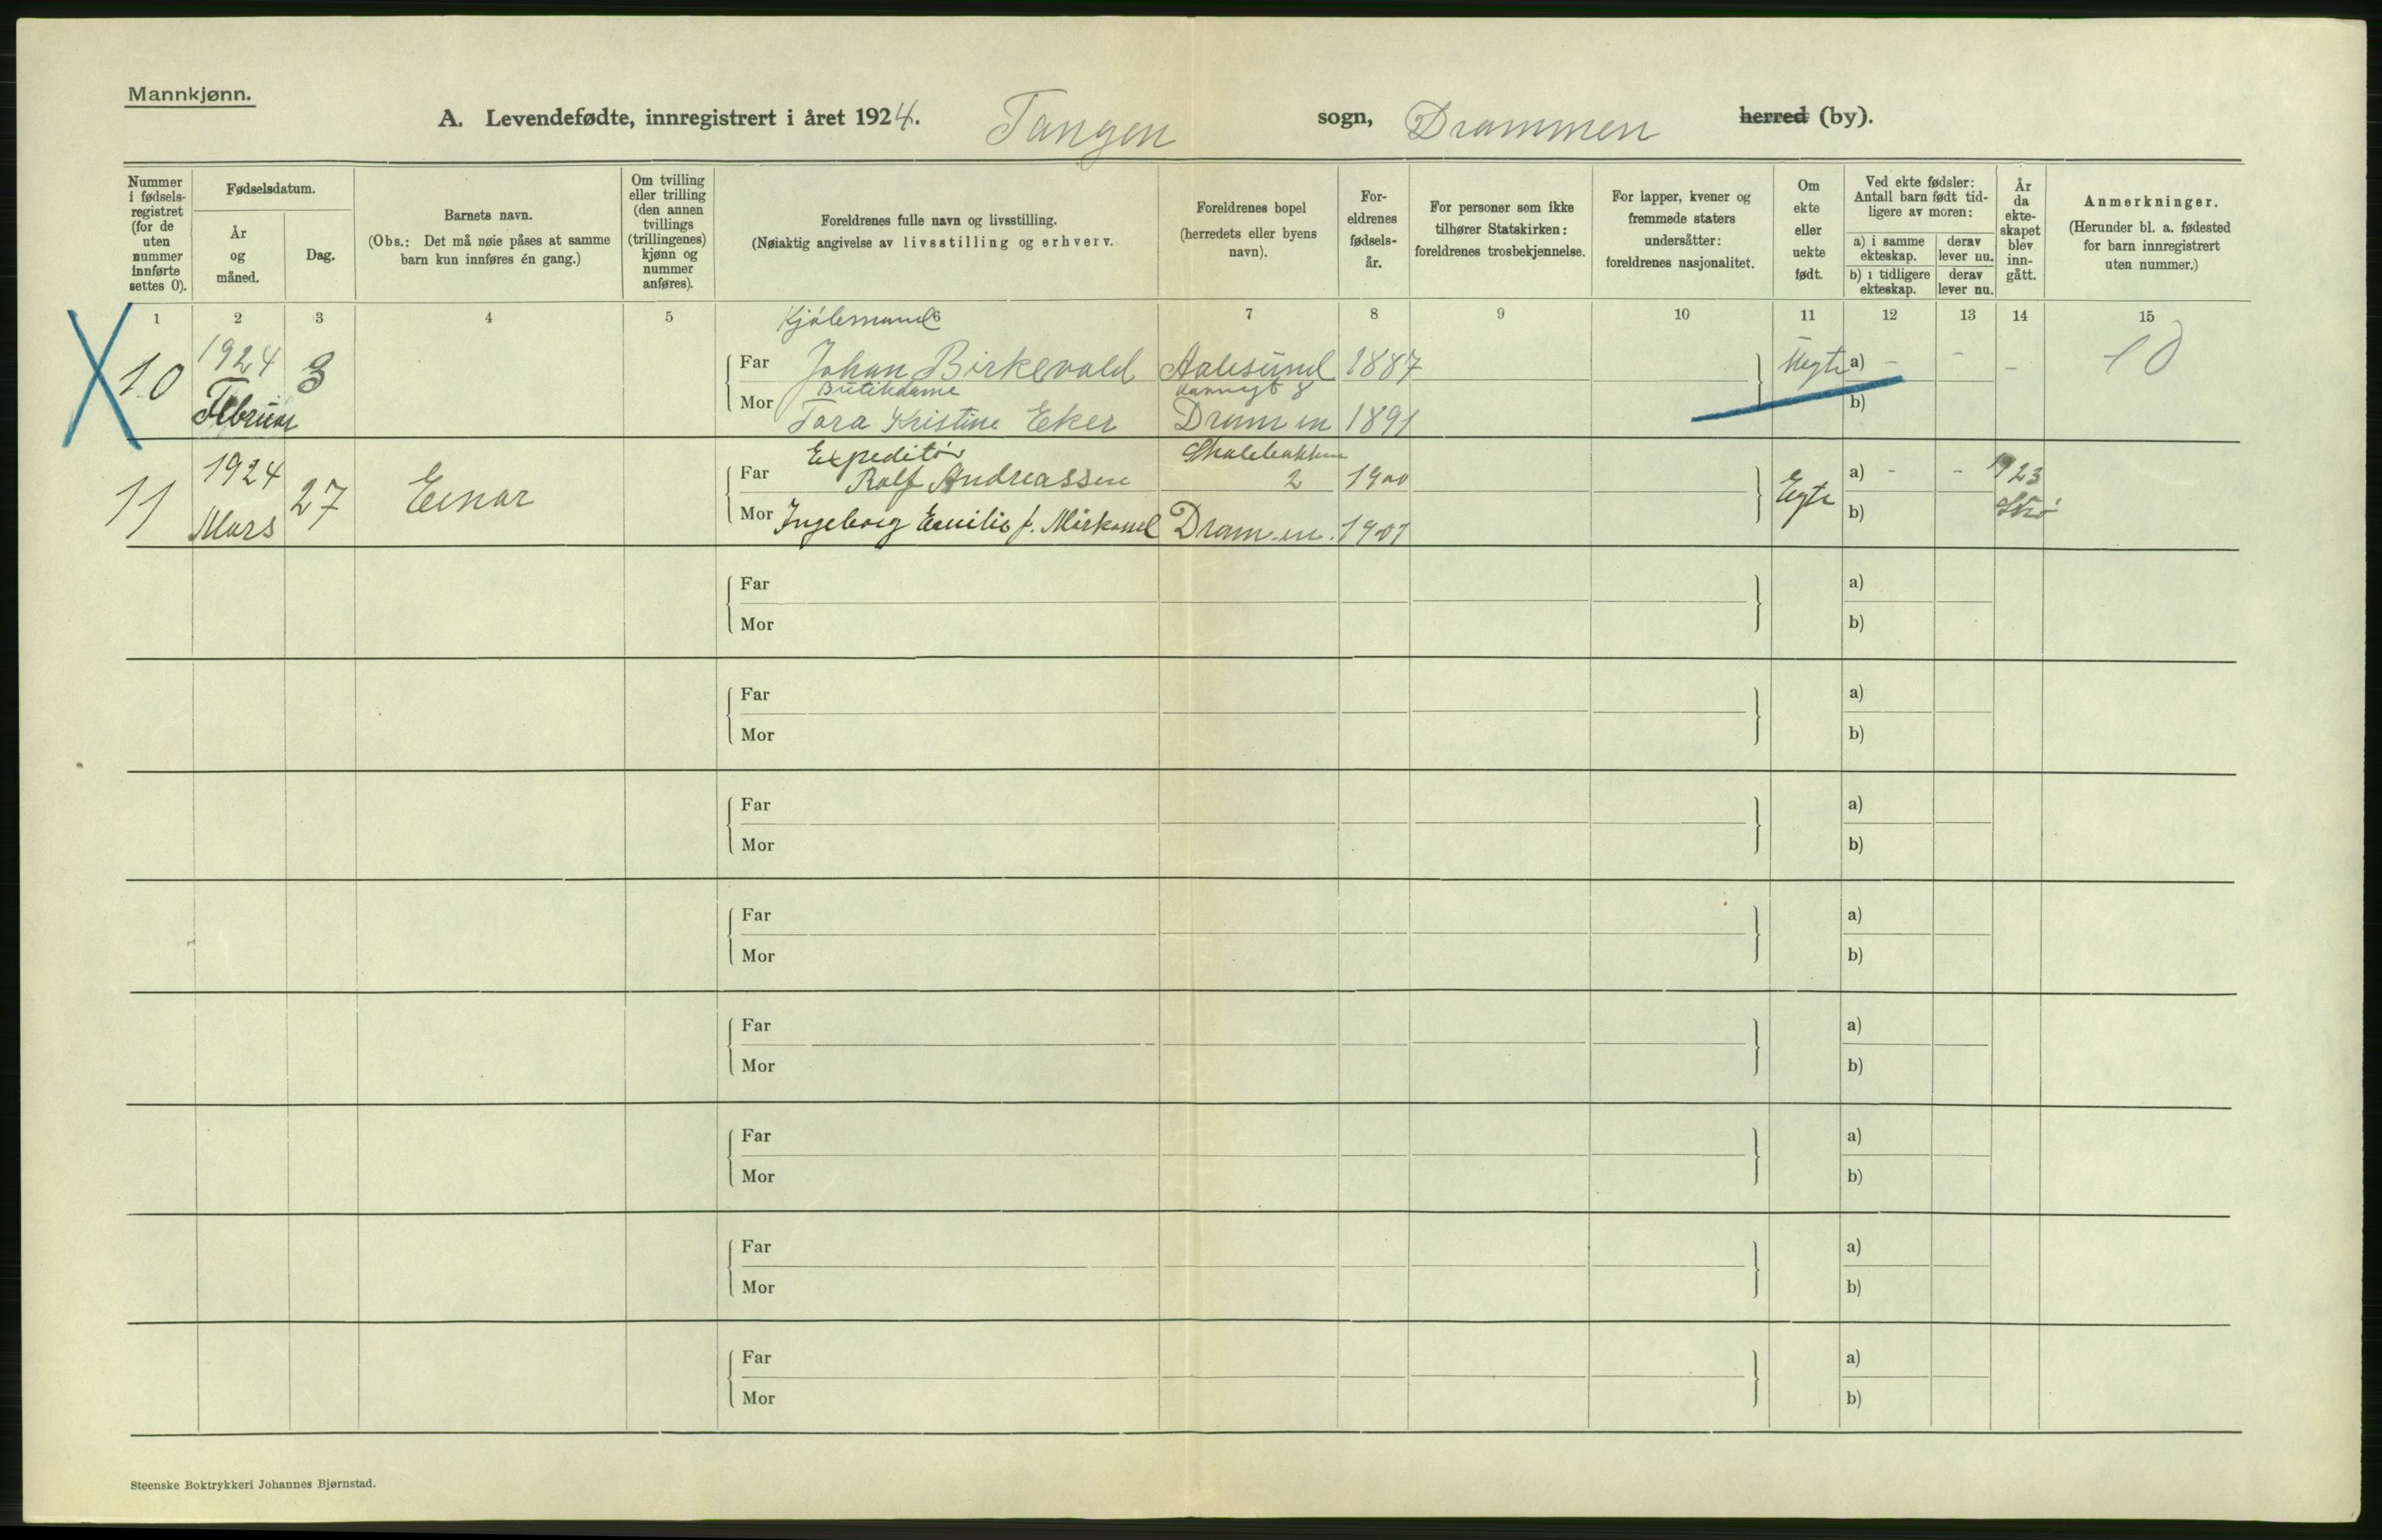 Mannkjønn.
A. Levendefødte, innregistrert i året 1924. Tangen sogn, Drammen herred (by).
Nummer i fødsels-registret (for de uten nummer innførte settes 0).
Fødselsdatum.
År og måned.
Dag.
Barnets navn.
(Obs.: Det må nøie påses at samme barn kun innføres én gang.)
Om tvilling eller trilling (den annen tvillings (trillingenes) kjønn og nummer anføres).
Foreldrenes fulle navn og livsstilling.
(Nøiaktig angivelse av livsstilling og erhverv.
Foreldrenes bopel (herredets eller byens navn).
For-eldrenes fødsels-år.
For personer som ikke tilhører Statskirken: foreldrenes trosbekjennelse.
For lapper, kvener og fremmede staters undersåtter: foreldrenes nasjonalitet.
Om ekte eller uekte født.
Ved ekte fødsler: Antall barn født tid-ligere av moren:
a) i samme ekteskap.
derav lever nu.
b) i tidligere ekteskap.
derav lever nu.
År da ekte-skapet blev inn-gått.
Anmerkninger.
(Herunder bl. a. fødested for barn innregistrert uten nummer.)
1 2 3 4 5 6 7 8 9 10 11 12 13 14 15
X 10 1924 Februar 3
Far Johan Birkevold Aalesund 1887 Uegte a) - - - 10
Butikdame
Mor Tora Kristine Eker Drammen 1891 b)
11 1924 Mars 27 Einar
Expeditør
Far Rolf Andreassen 2 1900 Egte a) - - 1923
Mor Ingeborg Emilie f. Drammen 1901 b)
Far a)
Mor b)
Far a)
Mor b)
Far a)
Mor b)
Far a)
Mor b)
Far a)
Mor b)
Far a)
Mor b)
Far a)
Mor b)
Far a)
Mor b)
Steenske Boktrykkeri Johannes Bjørnstad.